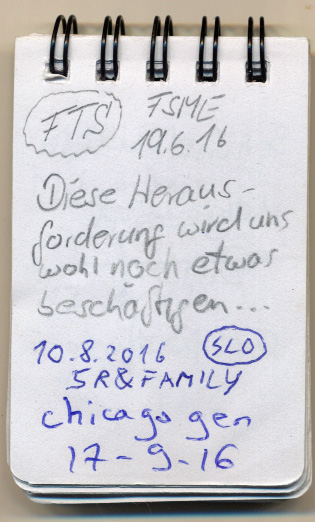 FTS FSME
19.6.16
Diese Heraus-
forderung wird uns
wohl noch etwas
beschäftigen...
10.8.2016 SLO
5R&FAMILY
chicago gen
17-9-16